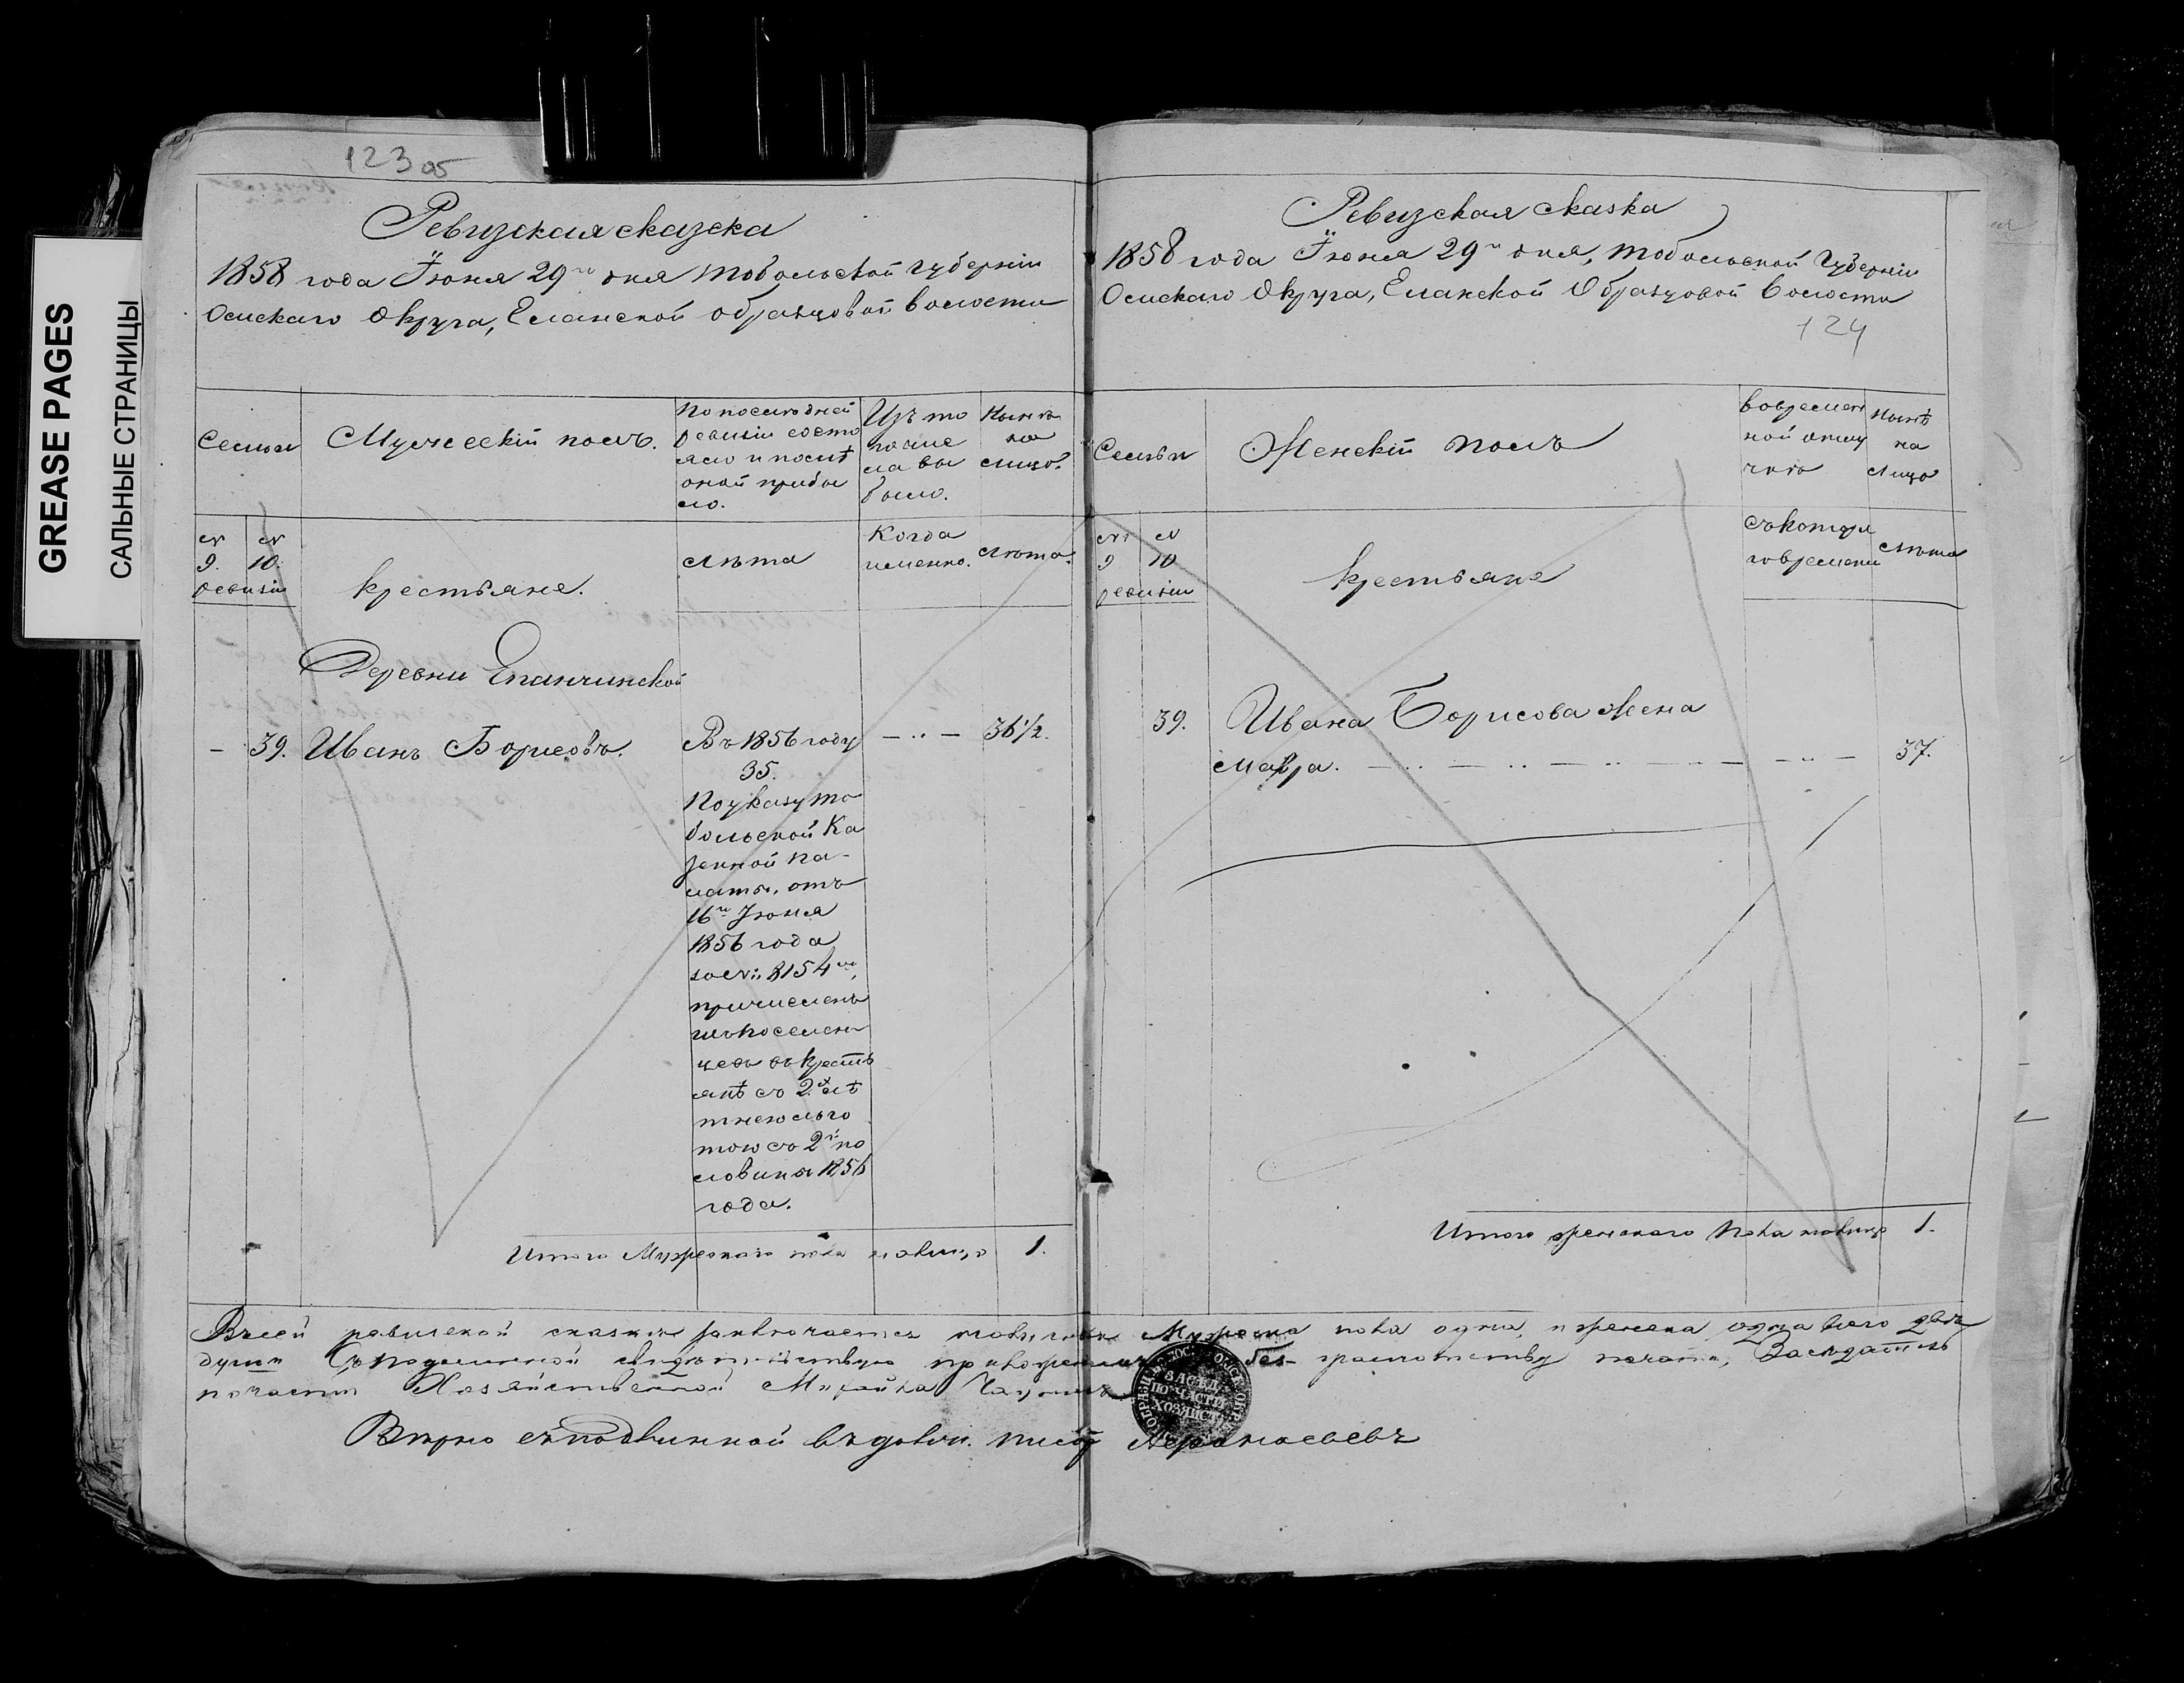 GREASE PAGES
САЛЬНЫЕ СТРАНИЦЫ
123 об
Ревизская сказска
1858 года Іюня 29го дня Тобольской губерніи
Омскаго Округа, Еланской образцовой волости
Семьи
Мужескій полъ.
По последней
ревизіи состо
яло и послѣ
оной прибы
ло.
Изъ то
го чис
ла вы
было.
Нынѣ
на
лицо.
№ №
9. 10.
ревизіи
крестьяне.
лѣта
Когда
именно.
лѣта.
Деревни Епанчинской
— 39. Иванъ Борисовъ.
Въ 1856 году
35.
— ·· — 36½.
По указу То
больской Ка
зенной па-
латы, отъ
16го Іюня
1856 года
за № 8154мъ,
причисленъ
изъ поселен
цевъ въ крестъ
янѣ съ 2хъ лѣ
тнею льго
тою съ 2й по
ловины 1856
года.
Итого Мужескаго пола на лицо 1.
Ревизская сказка
1858 года Іюня 29го дня, Тобольской Губерніи
Омскаго Округа, Еланской Образцовой Волости
124
Семьи
Женскій полъ
во времен
ной отлу
чкѣ
Нынѣ
на
лицо
№ №
9 10
ревизіи
крестьяне
съ котора
го времени
лѣта
39. Ивана Борисова жена
Мавра. — ·· — ·· — ·· — ·· — — ·· — 37.
Итого женскаго пола на лицо 1.
В сей ревизской сказкѣ заключается наличныхъ Мужеска пола одна, и женска одна всего двѣ
души Съ подлинной свидетельствую по безграмотству печать, Заседатель
по части Хозяйственной Михайла
ЗАСЕД.
ПО ЧАСТИ
ХОЗЯЙСТ.
Вѣрно съ подлинной